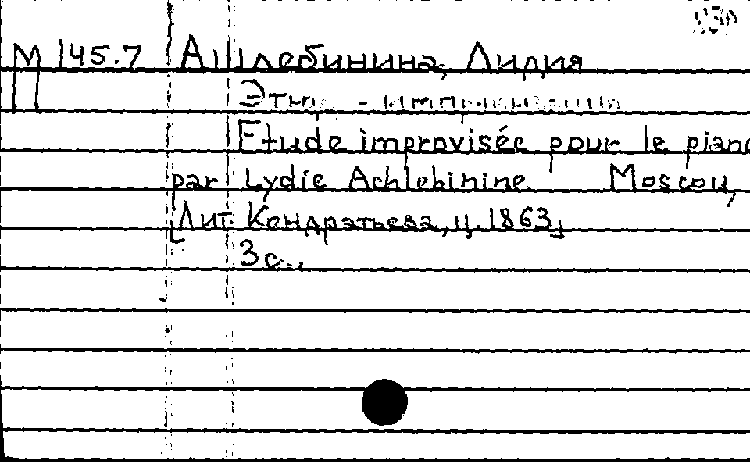 М 145.7 Ашлебинина, Лидия
Этюд - импровизация
Etude improvisée pour le piano
par Lydie Achlebinine Moscou,
[Лит. Кондратьева, ц. 1863]
3 с.